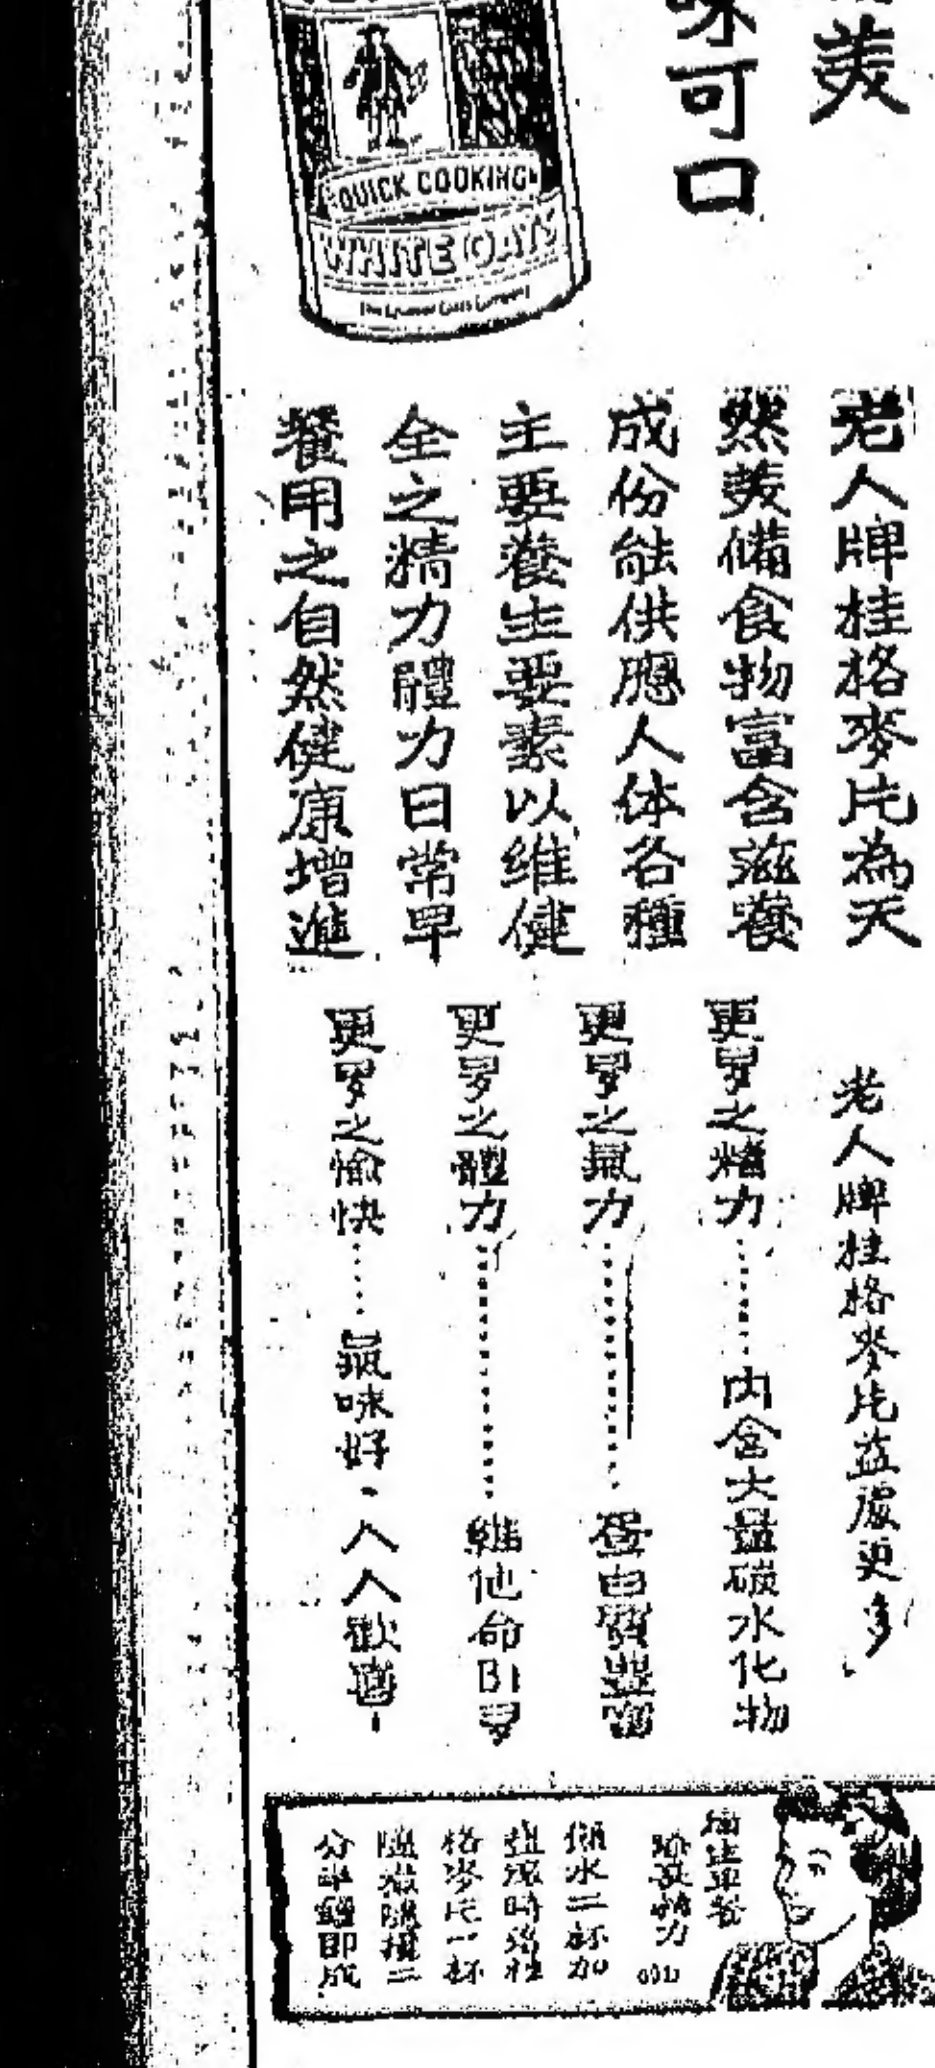 美
味可口
QUICK COOKING
WHITE OATS
The Quaker Oats Company
老人牌桂格麥片為天
然美備食物富含滋養
成份能供應人体各種
主要養生要素以維健
全之精力體力日常早
餐用之自然健康增進
老人牌桂格麥片益處更多
更多之精力……內含大量碳水化物
更多之氣力……蛋白質豐富
更多之體力……維他命B1多
更多之愉快……氣味好·人人歡喜!
衛生早餐
精力
傾水二杯加
鹽滾時落桂
格麥片一杯
隨攪二
分半鐘即成